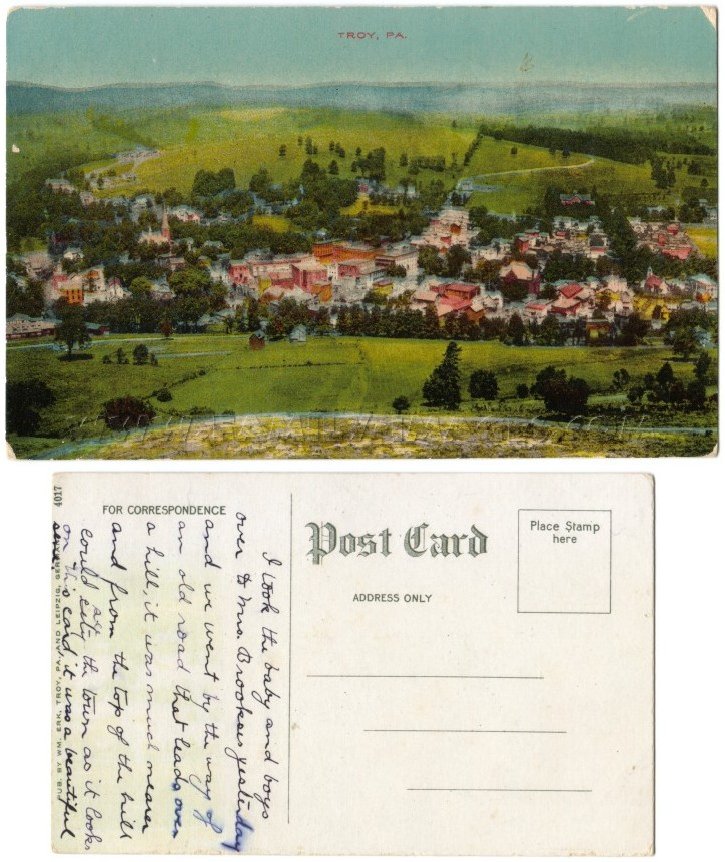 TROY, PA.
4017
FOR CORRESPONDENCE
Post Card
Place Stamp
here
ADDRESS ONLY
I took the baby and boys
over to Mrs. Brookses yesterday
and we went by the way of
an old road that leads over
a hill, it was much nearer
and from the top of the hill
could see the town as it looks
on this card it was a beautiful
PUB. BY WM. ERK, TROY, PA. AND LEIPZIG, GERMANY